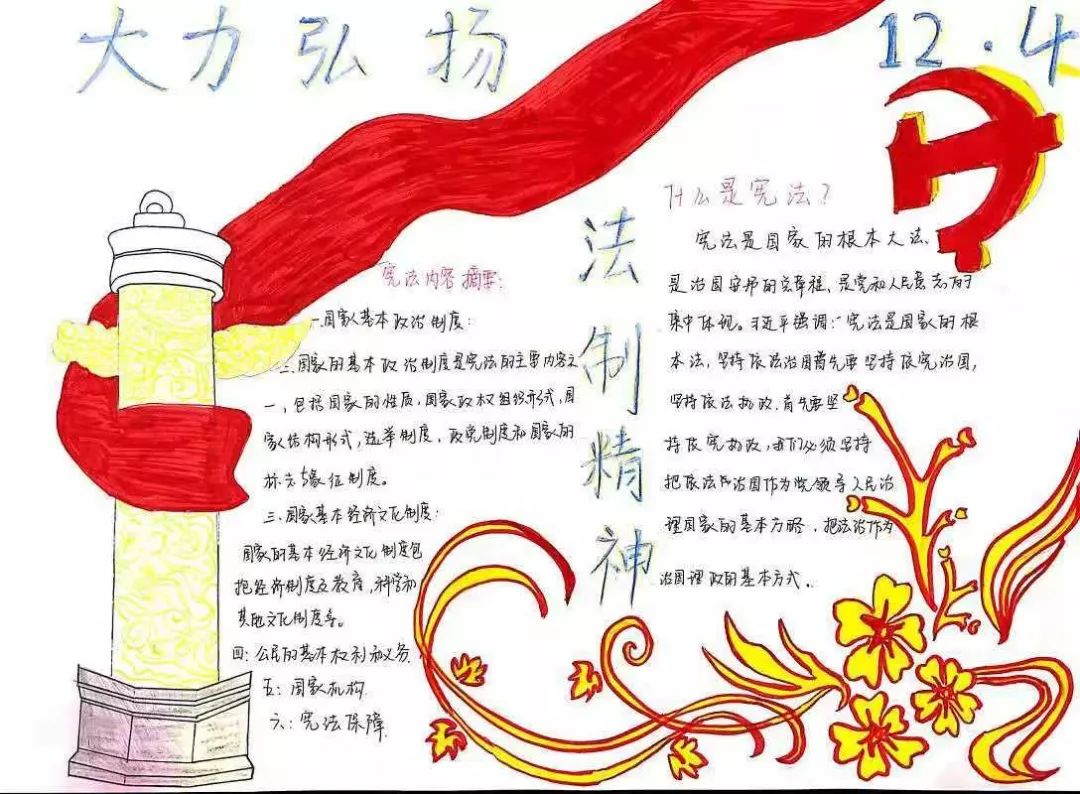 大力弘扬
12·4
法制精神
宪法内容摘要:
一.国家基本政治制度:
二.国家的基本政治制度是宪法的主要内容之
一,包括国家的性质,国家政权组织形式,国
家结构形式,选举制度,政党制度和国家的
标志与象征制度。
三.国家基本经济文化制度:
国家的基本经济文化制度包
括经济制度及教育,科学和
其他文化制度等。
四:公民的基本权利和义务
五:国家机构
六:宪法保障
什么是宪法?
宪法是国家的根本大法、
是治国安邦的总章程、是党和人民意志的
集中体现。习近平强调:“宪法是国家的根
本法,坚持依法治国首先要坚持依宪治国,
坚持依法执政,首先要坚
持依宪执政,我们必须坚持
把依法治国作为党领导人民治
理国家的基本方略,把法治作为
治国理政的基本方式.